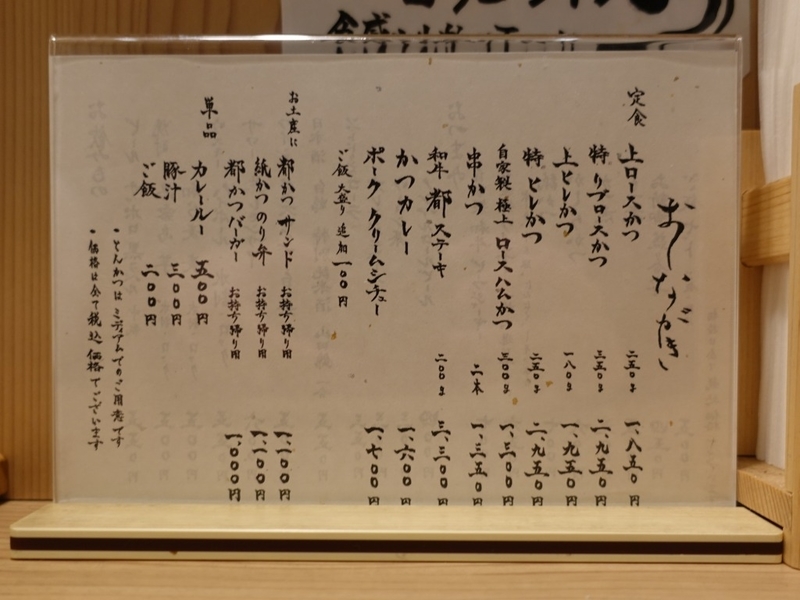 おしながき
定食
上ロースかつ 二五〇g 一、八五〇円
特リブロースかつ 三五〇g 二、九五〇円
上ヒレかつ 一八〇g 一、九五〇円
特ヒレかつ 二五〇g 二、九五〇円
自家製 極上 ロースハムかつ 三〇〇g 一、三〇〇円
串かつ 二本 一、三五〇円
和牛 都 ステーキ 二〇〇g 三、三〇〇円
かつカレー 一、六〇〇円
ポーク クリームシチュー 一、七〇〇円
ご飯 大盛り 追加 一〇〇円
お土産に
都かつ サンド お持ち帰り用 一、一〇〇円
紙かつ のり弁 お持ち帰り用 一、一〇〇円
都かつバーガー お持ち帰り用 一、〇〇〇円
単品
カレールー 五〇〇円
豚汁 三〇〇円
ご飯 二〇〇円
・とんかつは ミディアムでのご用意です
・価格は全て税込 価格でございます